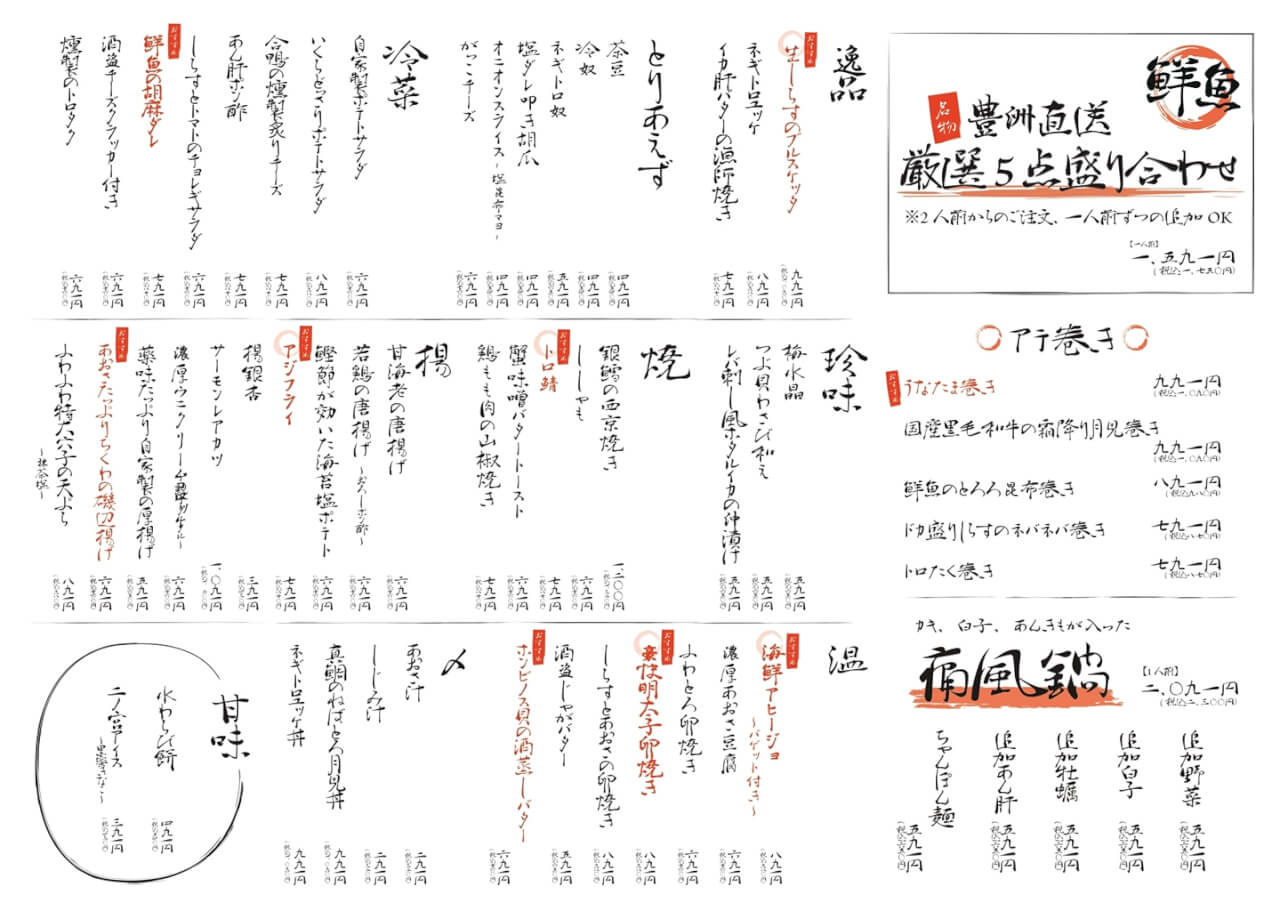 鮮魚
名物
豊洲直送
厳選5点盛り合わせ
※2人前からのご注文、一人前ずつの追加OK
【一人前】
一、五九一円
(税込一、七五〇円)
アテ巻き
おすすめ
うなたま巻き
九九一円
(税込一、〇九〇円)
国産黒毛和牛の霜降り月見巻き
九九一円
(税込一、〇九〇円)
鮮魚のとろろ昆布巻き
八九一円
(税込九八〇円)
ドカ盛りしらすのネバネバ巻き
七九一円
(税込八七〇円)
トロたく巻き
七九一円
(税込八七〇円)
カキ、白子、あんきもが入った
痛風鍋
【1人前】
二、〇九一円
(税込二、三〇〇円)
追加野菜
五九一円
(税込六五〇円)
追加白子
五九一円
(税込六五〇円)
追加牡蠣
五九一円
(税込六五〇円)
追加あん肝
五九一円
(税込六五〇円)
ちゃんぽん麺
五九一円
(税込六五〇円)
逸品
おすすめ
生しらすのブルスケッタ
九九一円
ネギトロユッケ
八九一円
イカ肝バターの漁師焼き
七九一円
とりあえず
茶豆
四九一円
冷奴
四九一円
ネギトロ奴
五九一円
塩ダレ叩き胡瓜
四九一円
オニオンスライス~塩昆布マヨ~
四九一円
がっこチーズ
六九一円
冷菜
自家製ポテトサラダ
六九一円
いくらどっさりポテトサラダ
八九一円
合鴨の燻製炙りチーズ
七九一円
あん肝ポン酢
七九一円
しらすとトマトのチョレギサラダ
六九一円
おすすめ
鮮魚の胡麻ダレ
七九一円
酒盗チーズクラッカー付き
六九一円
燻製のトロタク
六九一円
珍味
梅水晶
五九一円
つぶ貝わさび和え
五九一円
レバ刺し風ホタルイカの沖漬け
五九一円
焼
銀鱈の西京焼き
一、二〇〇円
ししゃも
六九一円
おすすめ
トロ鯖
七九一円
蟹味噌バタートースト
六九一円
鶏もも肉の山椒焼き
七九一円
揚
甘海老の唐揚げ
六九一円
若鶏の唐揚げ~おろしポン酢~
六九一円
鰹節が効いた海苔塩ポテト
六九一円
おすすめ
アジフライ
七九一円
揚銀杏
三九一円
サーモンレアカツ
一、〇九一円
濃厚ウニクリーム
六九一円
薬味たっぷり自家製の厚揚げ
五九一円
おすすめ
あおさたっぷりちくわの磯辺揚げ
六九一円
ふわふわ特大穴子の天ぷら
~抹茶塩~
八九一円
温
おすすめ
海鮮アヒージョ
~バゲット付き~
八九一円
濃厚あおさ豆腐
六九一円
ふわとろ卵焼き
六九一円
おすすめ
豪快明太子卵焼き
八九一円
しらすとあおさの卵焼き
八九一円
酒盗じゃがバター
五九一円
おすすめ
ホンビノス貝の酒蒸しバター
六九一円
〆
あおさ汁
二九一円
しじみ汁
二九一円
真鯛のねばとろ月見丼
九九一円
ネギトロユッケ丼
九九一円
甘味
水わらび餅
四九一円
二ノ宮アイス
~黒蜜きなこ~
三九一円